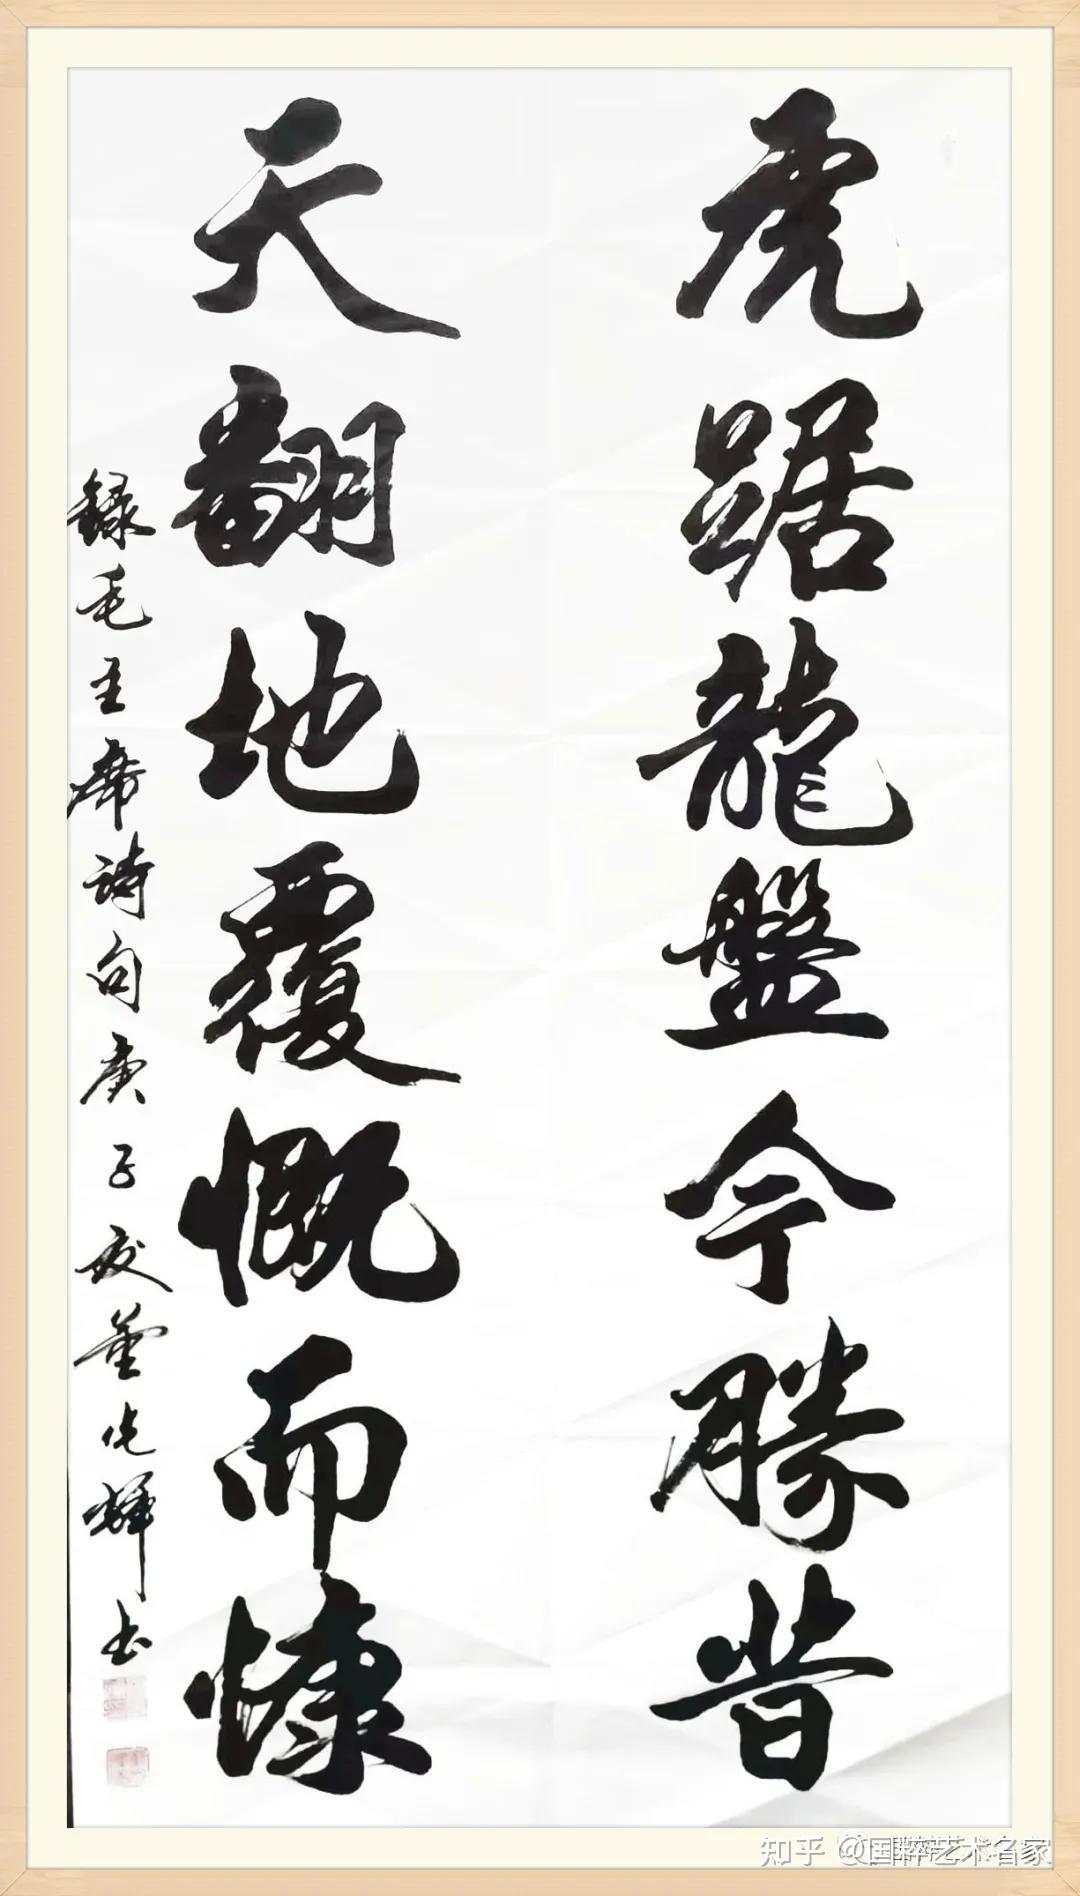 虎踞龍盤今勝昔
天翻地覆慨而慷
録毛主席詩句庚子夏董光輝书
知乎 @国粹艺术名家